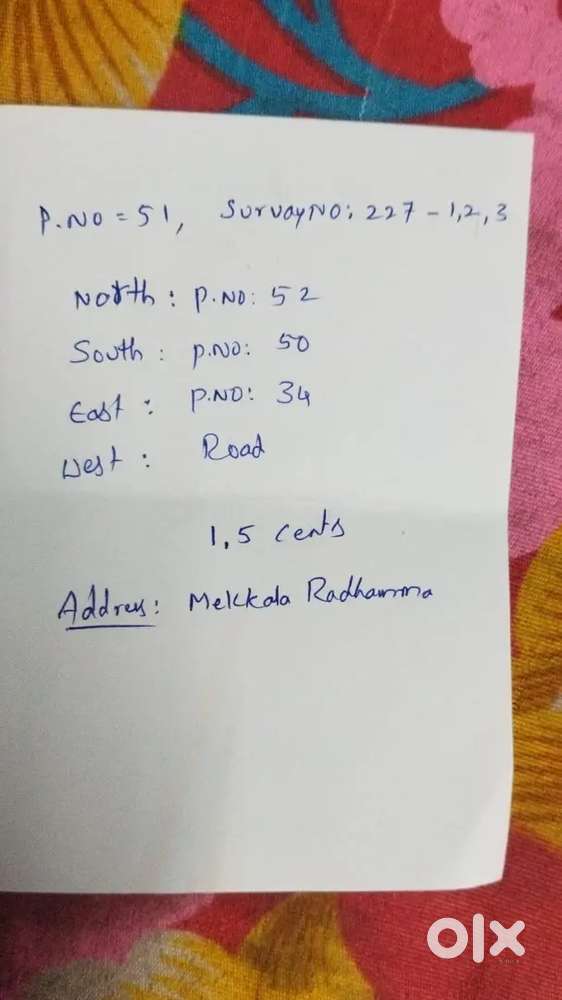 P.NO = 51, SurvayNO: 227 - 1,2,3
North: P.NO: 52
South: P.NO: 50
East: P.NO: 34
West: Road
1,5 cents
Address: Mekkala Radhamma
olx